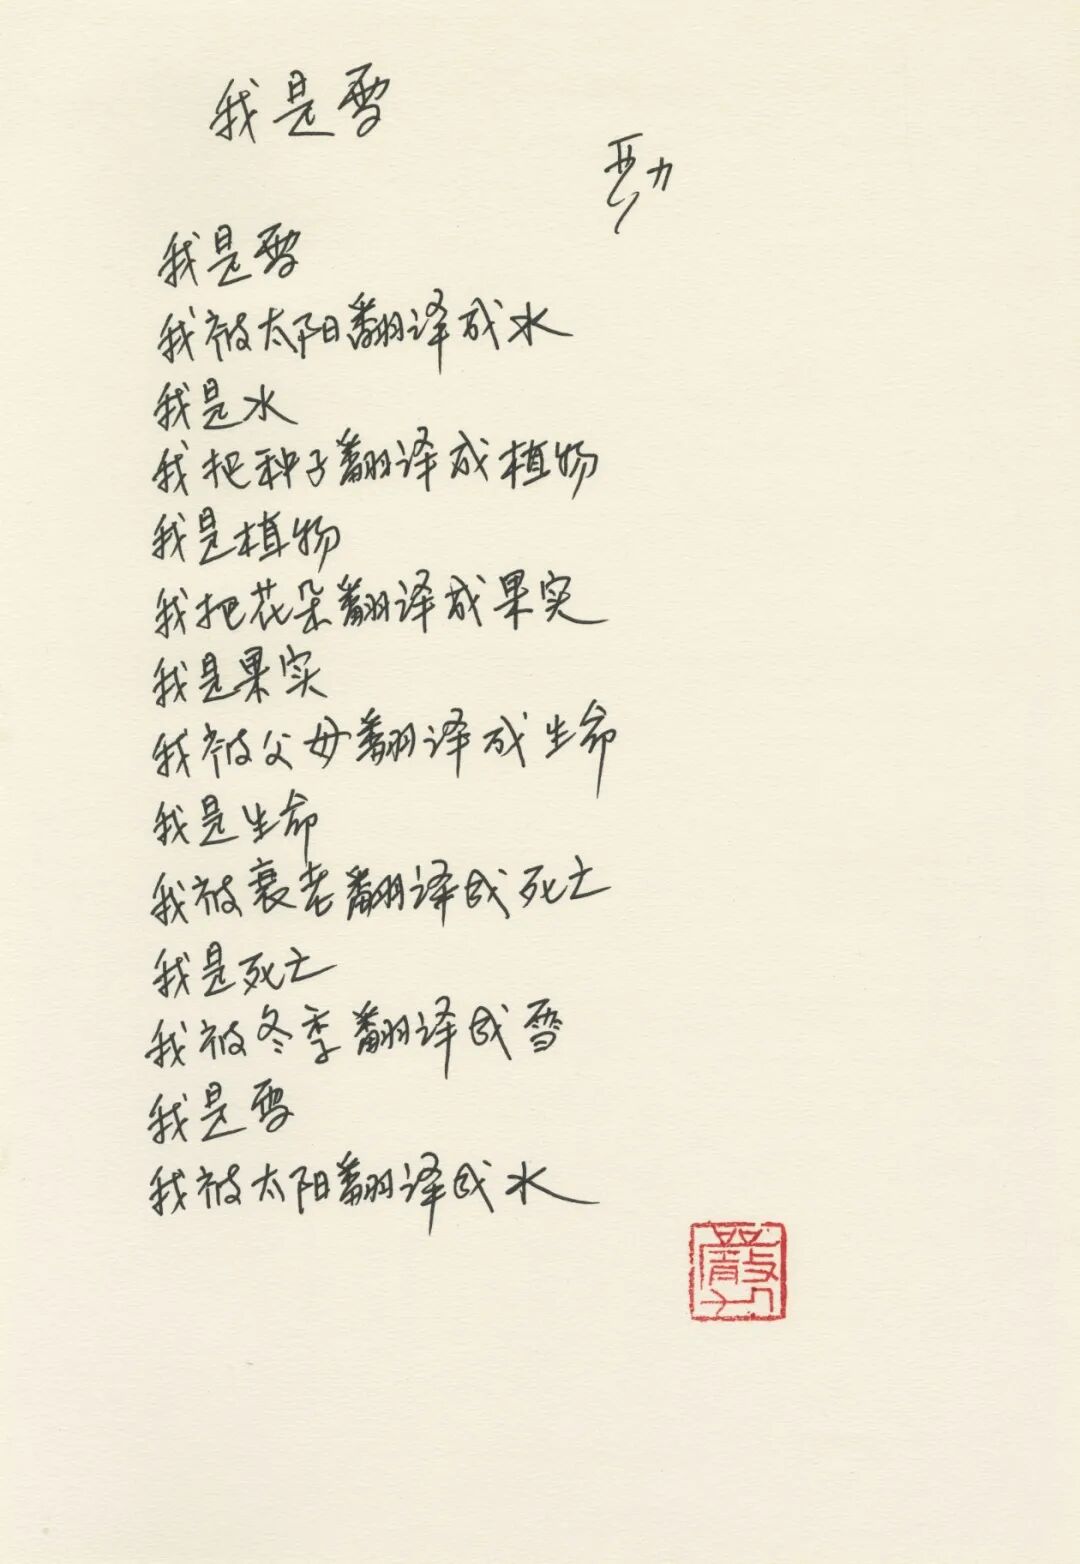 我是雪
严力
我是雪
我被太阳翻译成水
我是水
我把种子翻译成植物
我是植物
我把花朵翻译成果实
我是果实
我被父母翻译成生命
我是生命
我被衰老翻译成死亡
我是死亡
我被冬季翻译成雪
我是雪
我被太阳翻译成水
嚴力